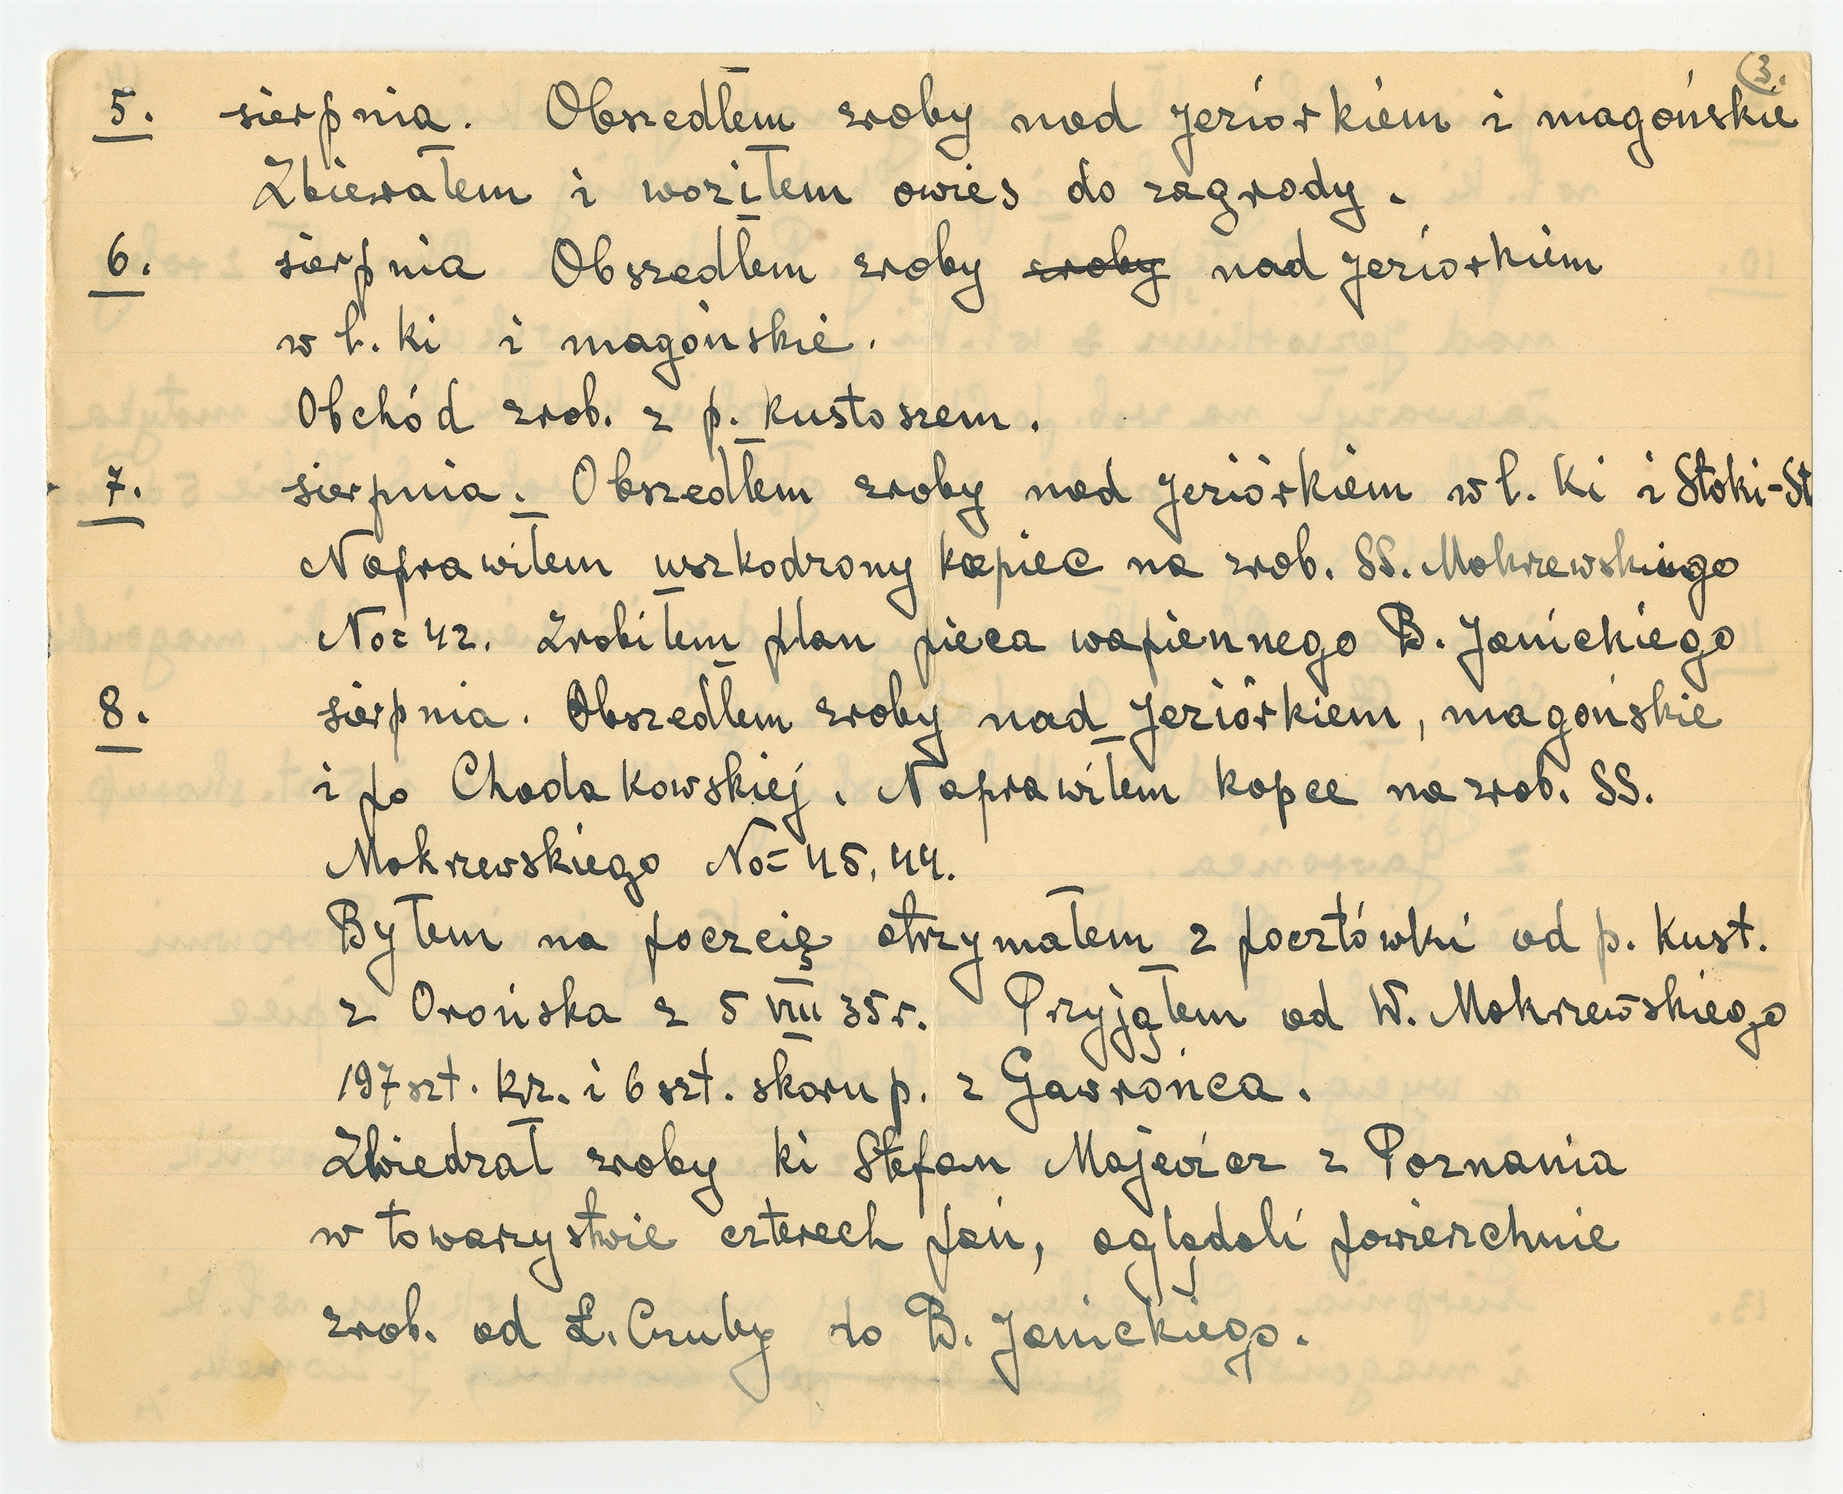 3.
5. sierpnia. Obszedłem zroby nad Jeziórkiem i magońskie
Zbierałem i woziłem owies do zagrody.
6. sierpnia Obszedłem zroby zroby nad Jeziorkiem
w l. ki i magońskie.
Obchód zrob. z p. kustoszem.
7. sierpnia. Obszedłem zroby nad Jeziórkiem w l. ki i Stoki-St
Naprawiłem uszkodzony kopiec na zrob. SS. Mokrzewskiego
No= 42. Zrobiłem plan pieca wapiennego B. Janickiego
8. sierpnia. Obszedłem zroby nad Jeziórkiem, magońskie
i po Chodakowskiej. Naprawiłem kopce na zrob. SS.
Mokrzewskiego No= 45, 44.
Byłem na poczcię otrzymałem 2 pocztówki od p. Kust.
z Orońska z 5 VIII 35 r. Przyjąłem od W. Mokrzewskiego
197 szt. krz. i 6 szt. skorup. z Gawrońca.
Zwiedzał zroby ki Stefan Majewicz z Poznania
w towarzystwie czterech pań, oglądali powierzchnie
zrob. od Ł. Czuby do B. Janickiego.